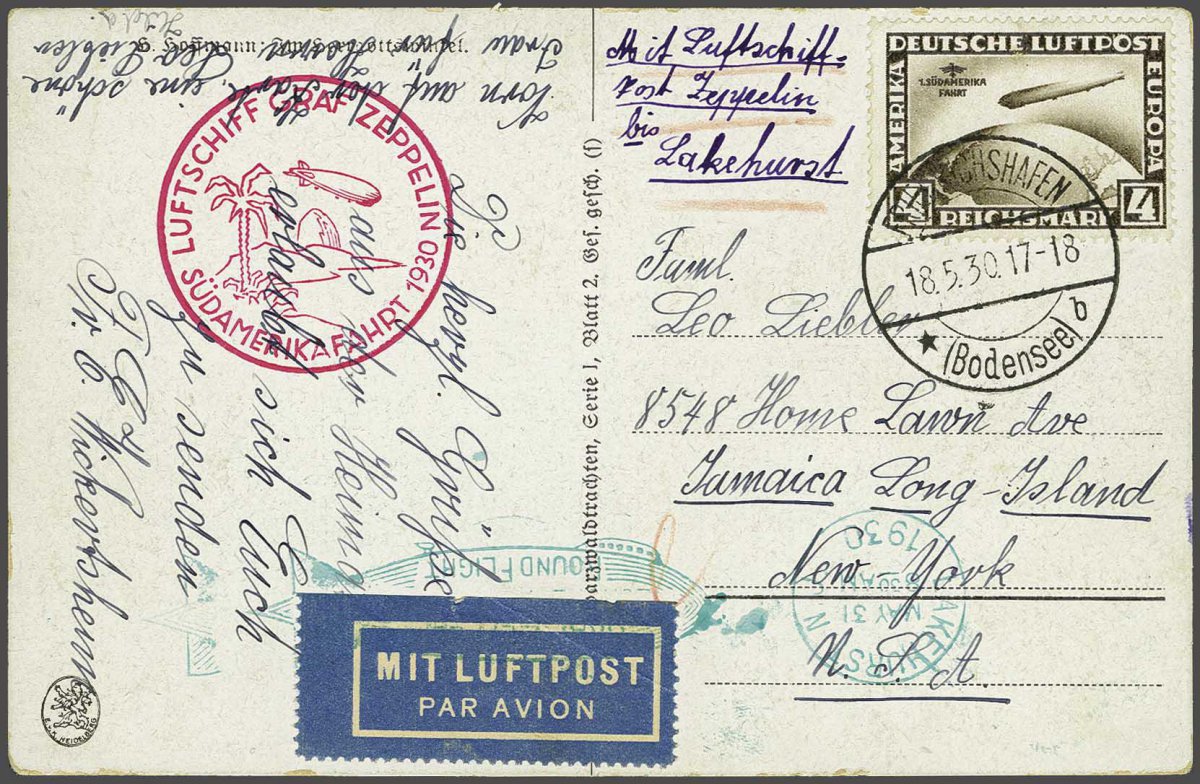 Mit Luftschiff=
Post Zeppelin
bis
Lakehurst
DEUTSCHE LUFTPOST
AMERIKA
EUROPA
1. SÜDAMERIKA
FAHRT
4 REICHSMARK 4
FRIEDRICHSHAFEN
18.5.30.17-18
(Bodensee) b
Faml.
Leo Liebler
8548 Home Lawn Ave
Jamaica Long-Island
New York
N. S. A.
LUFTSCHIFF GRAF ZEPPELIN
SÜDAMERIKAFAHRT 1930
Vorn auf der Karte, eine schöne
Frau
Leo Liebler
Die herzl. Grüße
aus der Heimat
erlaubt sich Euch
zu senden
G. Hoffmann:
Schwarzwaldtrachten, Serie I, Blatt 2. Ges. gesch. (f)
ROUND FLIGHT
LAKEHURST N
MAY 31
1930
MIT LUFTPOST
PAR AVION
HEIDELBERG